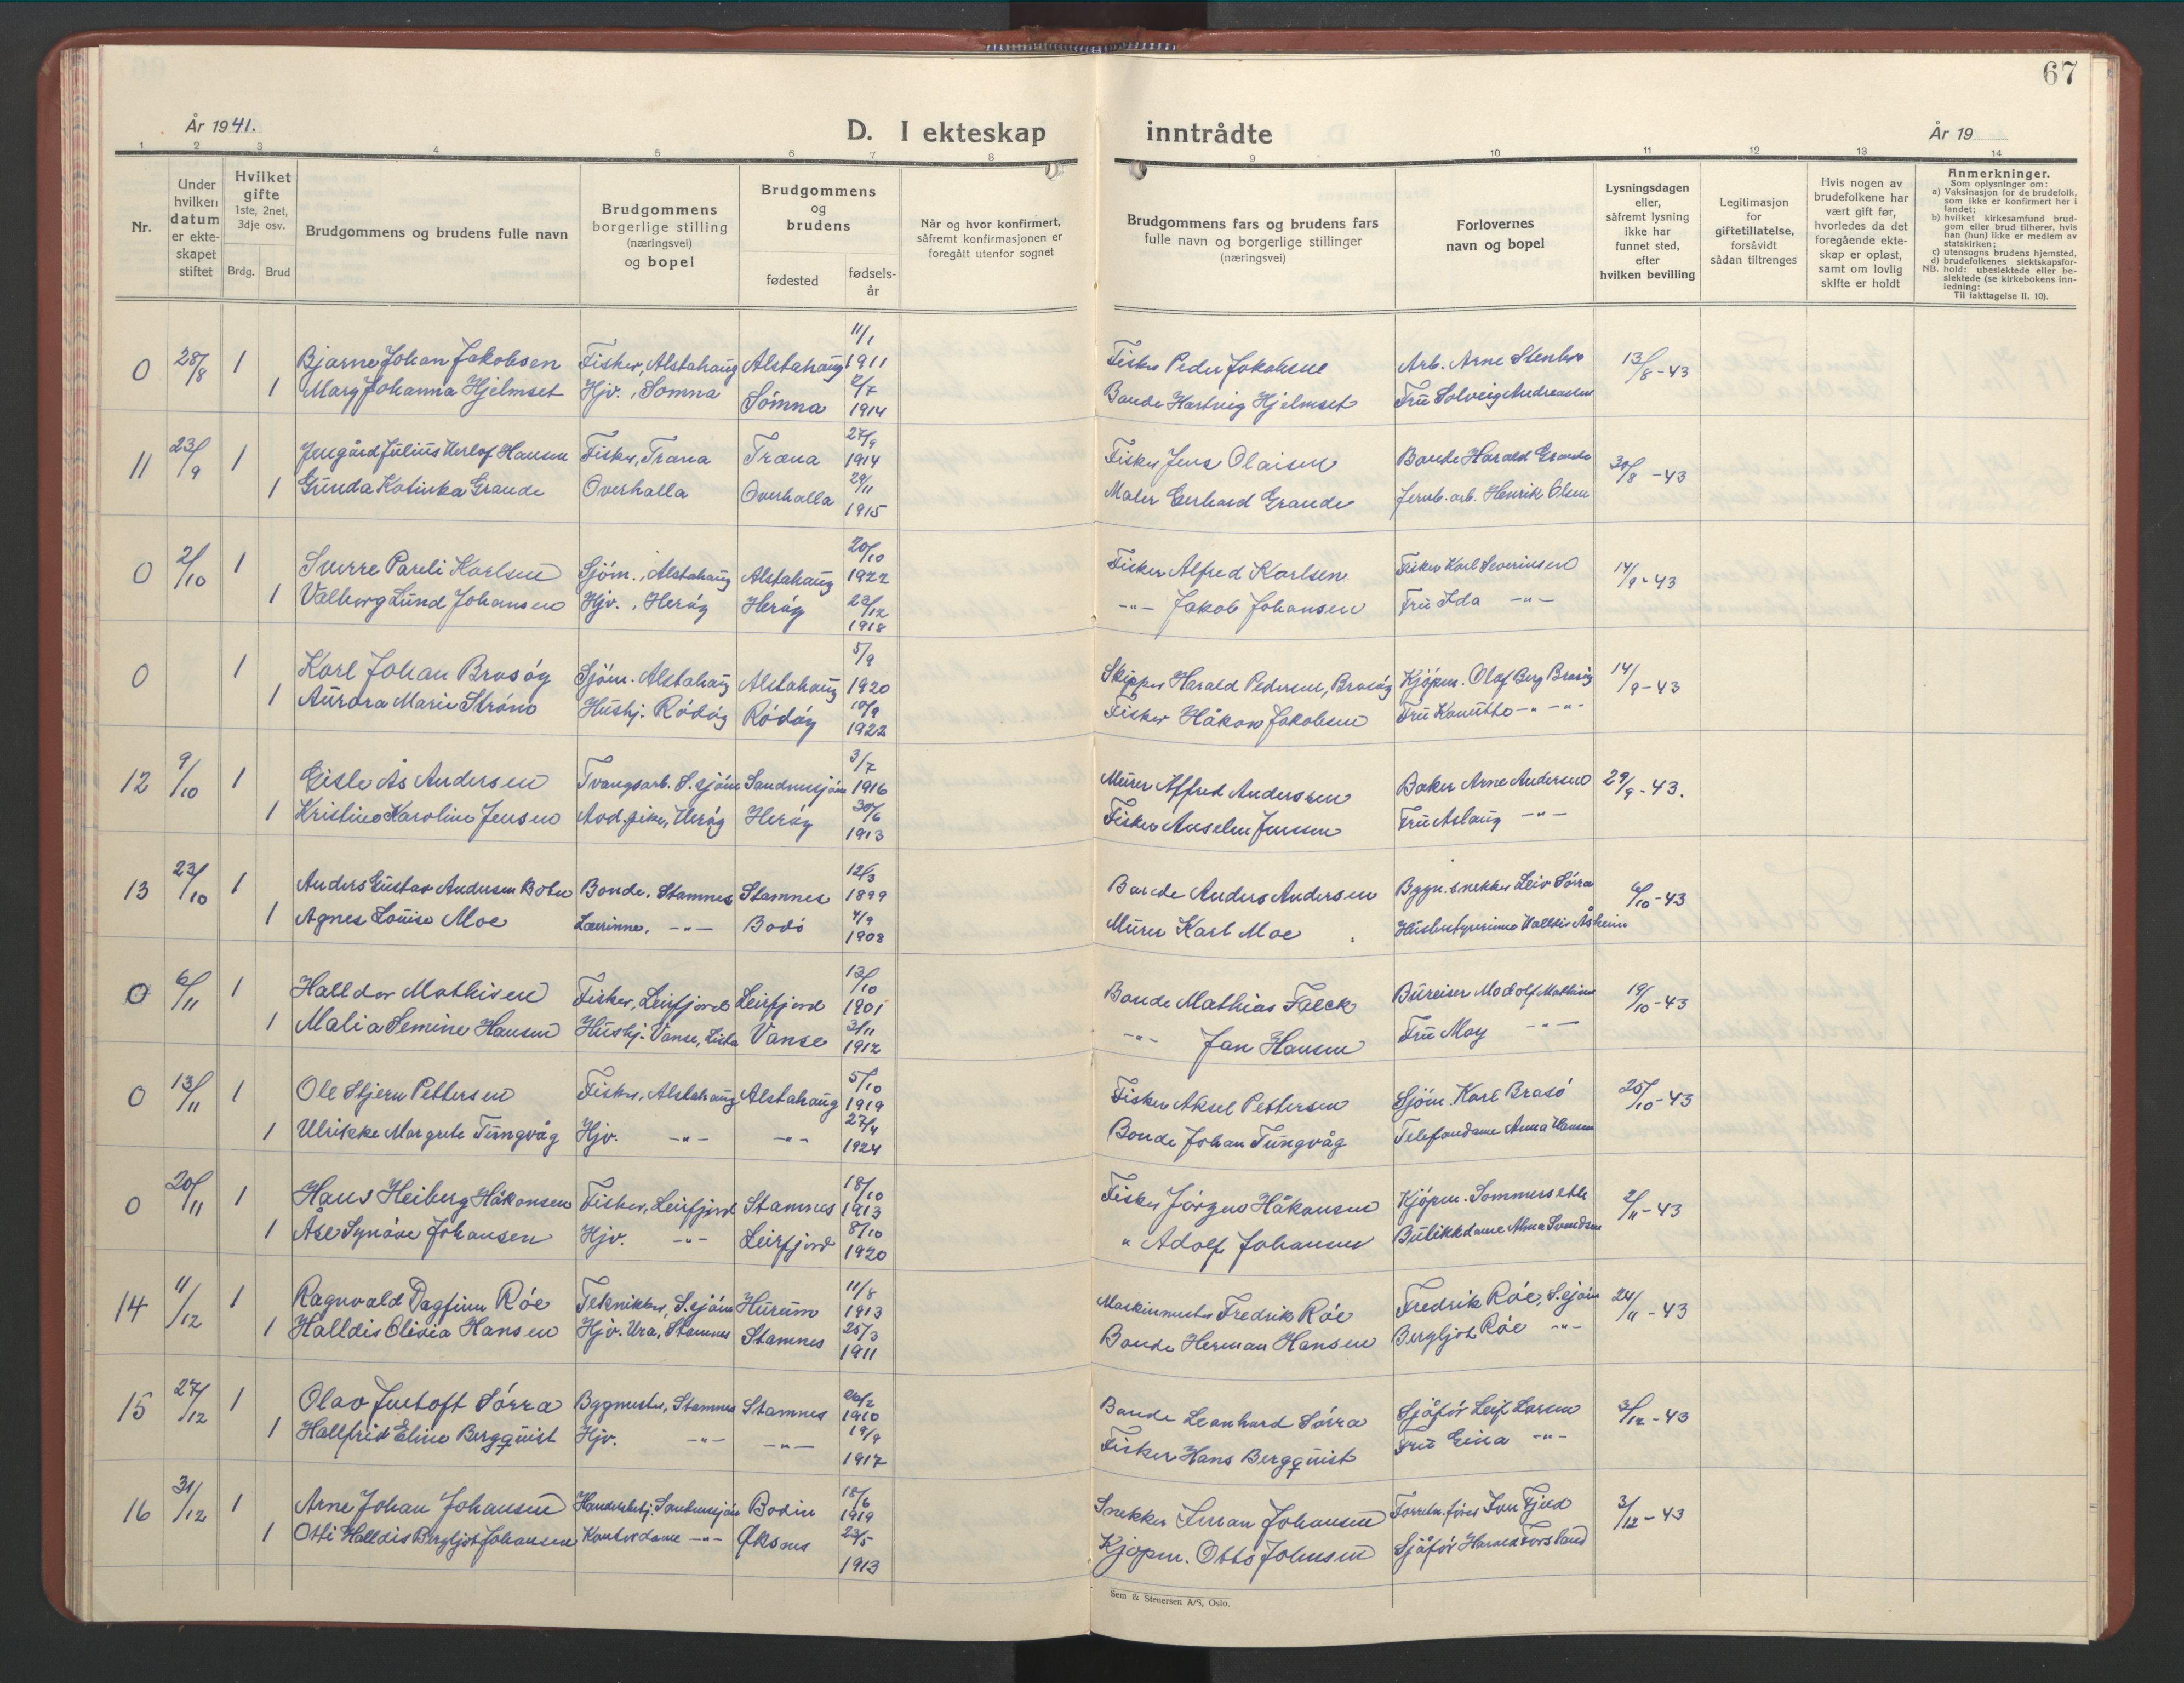 67
År 1941.
D. I ekteskap inntrådte
År 19
1 2 3 4 5 6 7 8 9 10 11 12 13 14
Nr.
Under hvilken datum er ekte-skapet stiftet
Hvilket gifte
1ste, 2net, 3dje osv.
Brdg. Brud
Brudgommens og brudens fulle navn
Brudgommens borgerlige stilling (næringsvei) og bopel
Brudgommens og brudens
fødested
fødsels-år
Når og hvor konfirmert, såfremt konfirmasjonen er foregått utenfor sognet
Brudgommens fars og brudens fars fulle navn og borgerlige stillinger (næringsvei)
Forlovernes navn og bopel
Lysningsdagen eller, såfremt lysning ikke har funnet sted, efter hvilken bevilling
Legitimasjon for giftetillatelse, forsåvidt sådan tiltrenges
Hvis nogen av brudefolkene har vært gift før, hvorledes da det foregående ekte-skap er opløst, samt om lovlig skifte er holdt
Anmerkninger.
Som oplysninger om:
a) Vaksinasjon for de brudefolk, som ikke er konfirmert her i landet;
b) hvilket kirkesamfund brud-gom eller brud tilhører, hvis han (hun) ikke er medlem av statskirken;
c) utensogns brudens hjemsted,
d) brudefolkenes slektskapsfor-hold: ubeslektede eller be-slektede (se kirkebokens inn-ledning:
NB.
Til iakttagelse II. 10).
0 28/8 1 Bjarne Johan Jakobsen Fisker, Alstahaug Alstahaug 11/1 1911 Fisker Peder Jakobsen Arb. Arne Stenbro 13/8-43
1 Mary Johanna Hjelmset Hjv., Sømna Sømna 2/7 1914 Bonde Hartvig Hjelmset Fru Solveig Andreassen
11 23/9 1 Jengård Julius Herlof Hansen Fisker, Træna Træna 27/9 1914 Fisker Jens Olaisen Bonde Harald Grande 30/8-43
1 Gunda Katinka Grande Overhalla Overhalla 29/11 1915 Maler Gerhard Grande Jernb. arb. Henrik Olsen
0 2/10 1 Sverre Pareli Karlsen Sjøm., Alstahaug Alstahaug 20/10 1922 Fisker Alfred Karlsen Fisker Karl Severinsen 14/9-43
1 Valborg Lund Johansen Hjv., Herøy Herøy 23/12 1918 -"- Jakob Johansen Fru Ida -"-
0 1 Karl Johan Brasøy Sjøm. Alstahaug Alstahaug 5/9 1920 Skipper Harald Pedersen, Brasøy Kjøpm. Olaf Berg Brasøy 14/9-43
1 Aurora Marie Strøno Hushj. Rødøy Rødøy 10/9 1922 Fisker Håkon Jakobsen Fru Kanutte -"- -"-
12 9/10 1 Gisle Ås Andersen Tvangsarb. S.sjøen Sandnessjøen 3/7 1916 Murer Alfred Andersen Baker Arne Andersen 29/9-43.
1 Kristine Karoline Jensen Avd. pike, Herøy Herøy 30/6 1913 Fisker Anselm Jensen Fru Aslaug -"-
13 23/10 1 Anders Gustav Andersen Botn Bonde, Stamnes Stamnes 12/3 1899 Bonde Anders Andersen Bygn. snekker Leiv Sørra 6/10-43
1 Agnes Louise Moe Lærinne, -"- Bodø 4/9 1908 Murer Karl Moe Husbestyrerinne Halldis Åsheim
0 6/11 1 Halldor Mathisen Fisker, Leirfjord Leirfjord 13/10 1901 Bonde Mathias Falck Bureiser Modolf Mathisen 19/10-43
1 Malia Semine Hansen Hushj. Vanse, Lista Vanse 3/11 1912 -"- Jan Hansen Fru May -"-
0 13/11 1 Ole Stjern Pettersen Fisker, Alstahaug Alstahaug 5/10 1919 Fisker Aksel Pettersen Sjøm. Karl Brasø 25/10-43
1 Ulrikke Margrete Tungvåg Hjv. -"- -"- 27/4 1924 Bonde Johan Tungvåg Telefondame Anna Hansen
0 20/11 1 Hans Heiberg Håkonsen Fisker, Leirfjord Stamnes 18/10 1913 Fisker Jørgen Håkonsen Kjøpm. Sommerseth 2/11-43
1 Åse Synøve Johansen Hjv. -"- Leirfjord 8/10 1920 " Adolf Johansen Butikkdame Alma Svendsen
14 11/12 1 Ragnvald Dagfinn Røe Tekniker, S.sjøen Hurum 11/8 1913 Maskinmester Fredrik Røe Fredrik Røe, S.sjøen 24/11-43
1 Halldis Olivia Hansen Hjv. Ura, Stamnes Stamnes 25/3 1911 Bonde Herman Hansen Bergljot Røe -"-
15 27/12 1 Olav Justoft Sørra Byggmester, Stamnes Stamnes 26/2 1910 Bonde Leonhard Sørra Sjåfør Leif Larsen 3/12-43
1 Hallfrid Eline Bergquist Hjv. -"- -"- 19/9 1917 Fisker Hans Bergquist Fru Gina -"-
16 31/12 1 Arne Johan Johansen Handelsbetj. Sandnessjøen Bodin 18/6 1919 Snekker Johansen Forretn. fører Fjeld 3/12-43
1 Otti Halldis Bergljot Johansen Kontordame -"- Øksnes 23/5 1913 Kjøpm. Otto Johnsen Sjåfør Forsland
Sem & Stenersen A/S, Oslo.